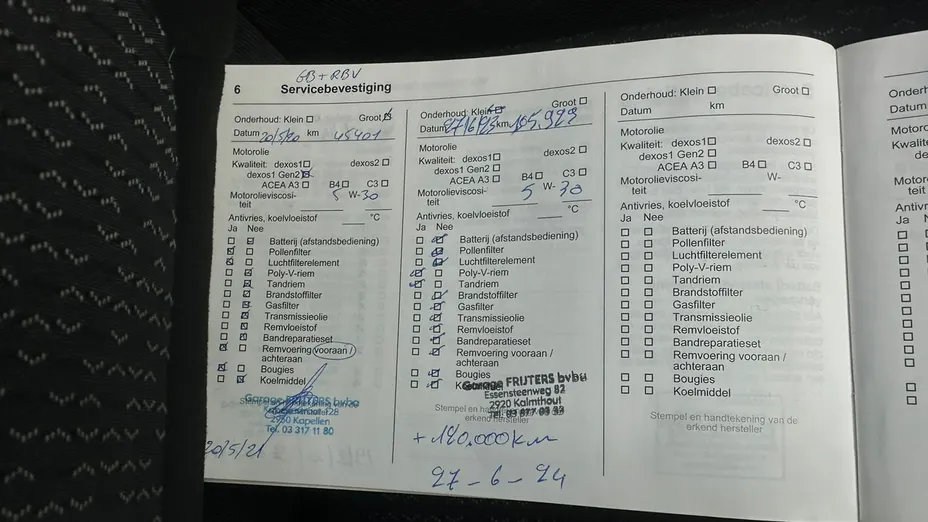 GB + RBV
6 Servicebevestiging
Onderhoud: Klein Groot
Datum 20/5/20 km 45401
Motorolie
Kwaliteit: dexos1 dexos2
dexos1 Gen2
ACEA A3 B4 C3
Motorolieviscosi- 5 W- 30
teit
Antivries, koelvloeistof °C
Ja Nee
Batterij (afstandsbediening)
Pollenfilter
Luchtfilterelement
Poly-V-riem
Tandriem
Brandstoffilter
Gasfilter
Transmissieolie
Remvloeistof
Bandreparatieset
Remvoering vooraan /
achteraan
Bougies
Koelmiddel
Garage FRIJTERS bvba
2950 Kapellen
Tel. 03 317 11 80
20/5/21
Onderhoud: Klein Groot
Datum 27/6/23 km 105.929
Motorolie
Kwaliteit: dexos1 dexos2
dexos1 Gen2
ACEA A3 B4 C3
Motorolieviscosi- 5 W- 30
teit
Antivries, koelvloeistof °C
Ja Nee
Batterij (afstandsbediening)
Pollenfilter
Luchtfilterelement
Poly-V-riem
Tandriem
Brandstoffilter
Gasfilter
Transmissieolie
Remvloeistof
Bandreparatieset
Remvoering vooraan /
achteraan
Bougies
Garage FRIJTERS bvba
Essensteenweg 82
2920 Kalmthout
Stempel en
erkend hersteller
+ 120.000 km
27-6-24
Onderhoud: Klein Groot
Datum km
Motorolie
Kwaliteit: dexos1 dexos2
dexos1 Gen2
ACEA A3 B4 C3
Motorolieviscosi- W-
teit
Antivries, koelvloeistof °C
Ja Nee
Batterij (afstandsbediening)
Pollenfilter
Luchtfilterelement
Poly-V-riem
Tandriem
Brandstoffilter
Gasfilter
Transmissieolie
Remvloeistof
Bandreparatieset
Remvoering vooraan /
achteraan
Bougies
Koelmiddel
Stempel en handtekening van de
erkend hersteller
Datum
Ja Nee